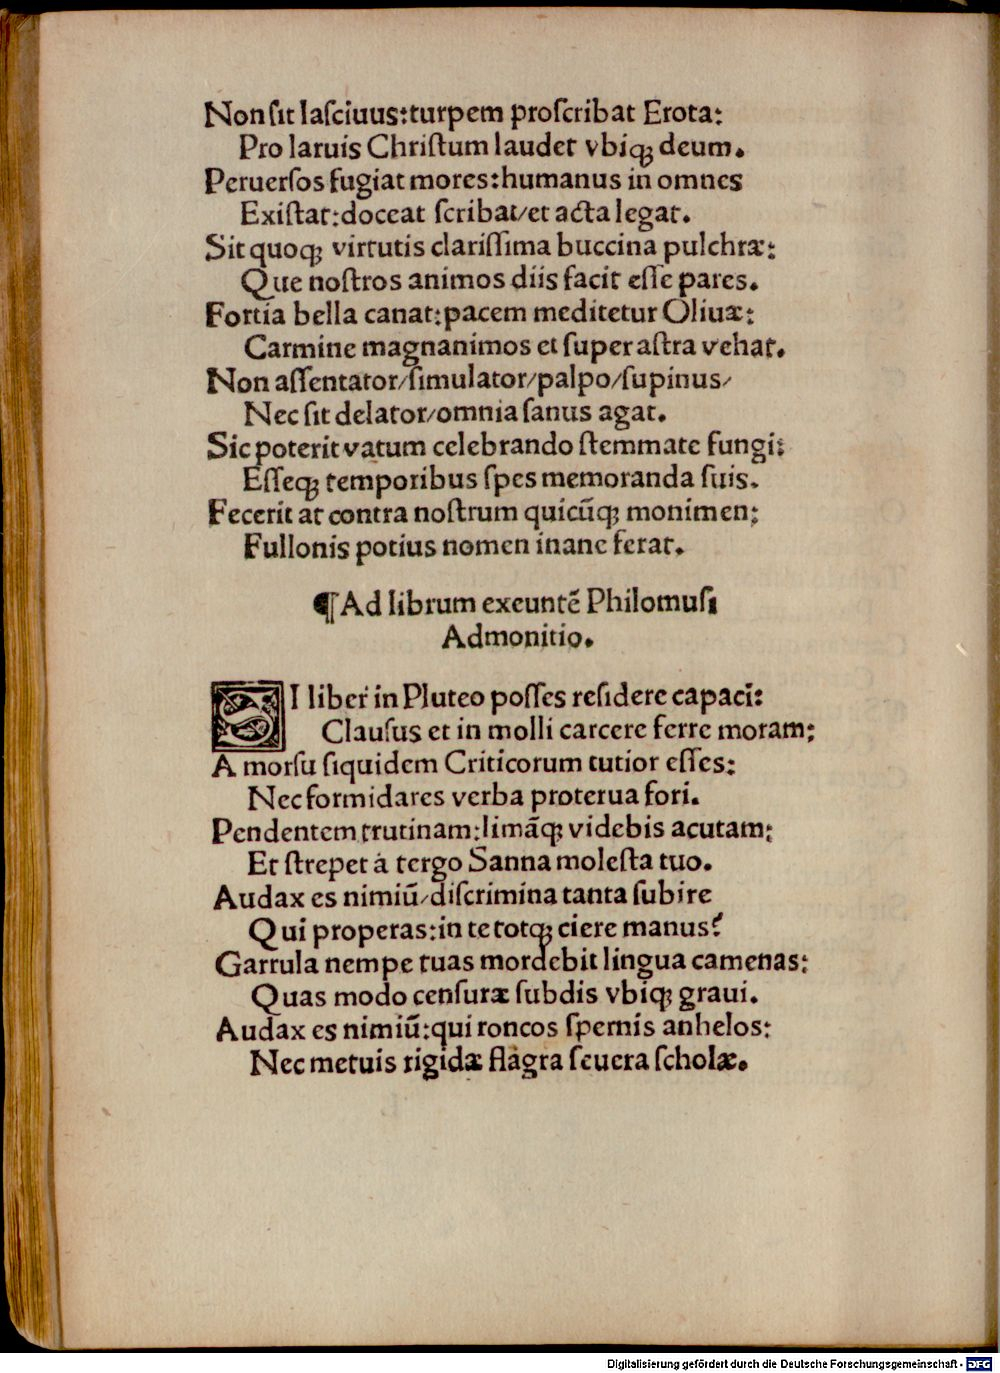 Non ſit laſciuus:turpem proſcribat Erota:
Pro laruis Chriſtum laudet vbiqꝫ deum.
Peruerſos fugiat mores:humanus in omnes
Exiſtat:doceat ſcribat/et acta legat.
Sit quoqꝫ virtutis clariſſima buccina pulchræ:
Que noſtros animos diis facit eſſe pares.
Fortia bella canat:pacem meditetur Oliuæ:
Carmine magnanimos et super aſtra vehat.
Non aſſentator/ſimulator/palpo/ſupinus/
Nec ſit delator/omnia ſanus agat.
Sic poterit vatum celebrando ſtemmate fungi:
Eſſeqꝫ temporibus ſpes memoranda ſuis.
Fecerit at contra noſtrum quicūqꝫ monimen:
Fullonis potius nomen inane ferat.
¶Ad librum exeuntē Philomuſi
Admonitio.
SI liber in Pluteo poſſes reſidere capaci:
Clauſus et in molli carcere ferre moram:
A morſu ſiquidem Criticorum tutior eſſes:
Nec formidares verba proterua fori.
Pendentem trutinam:limāqꝫ videbis acutam:
Et ſtrepet à tergo Sanna moleſta tuo.
Audax es nimiū/diſcrimina tanta ſubire
Qui properas:in te totqꝫ ciere manus?
Garrula nempe tuas mordebit lingua camenas:
Quas modo cenſuræ ſubdis vbiqꝫ graui.
Audax es nimiū:qui roncos ſpernis anhelos:
Nec metuis rigidæ flagra ſeuera ſcholæ.
Digitalisierung gefördert durch die Deutsche Forschungsgemeinschaft - DFG